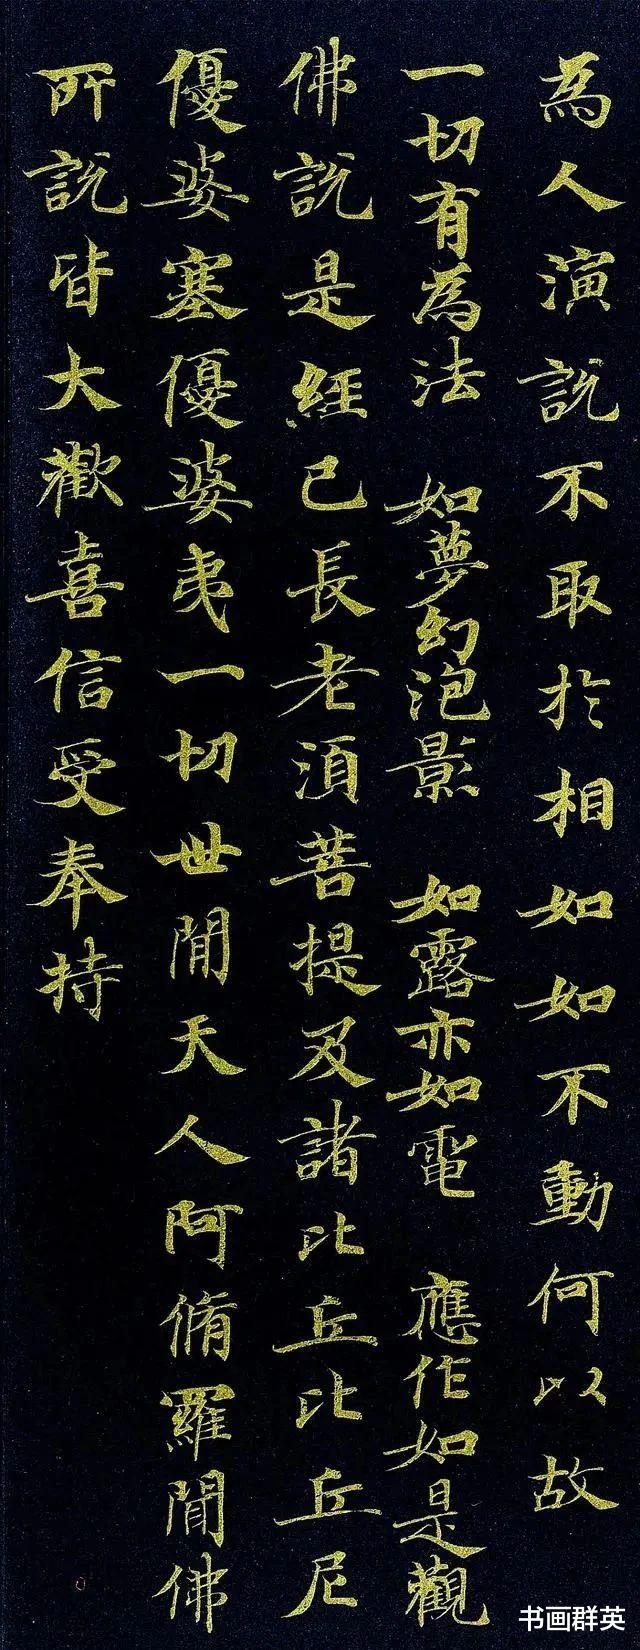 為人演說不取於相如如不動何以故
一切有為法 如夢幻泡影 如露亦如電 應作如是觀
佛說是經已長老須菩提及諸比丘比丘尼
優婆塞優婆夷一切世間天人阿脩羅聞佛
所說皆大歡喜信受奉持
书画群英